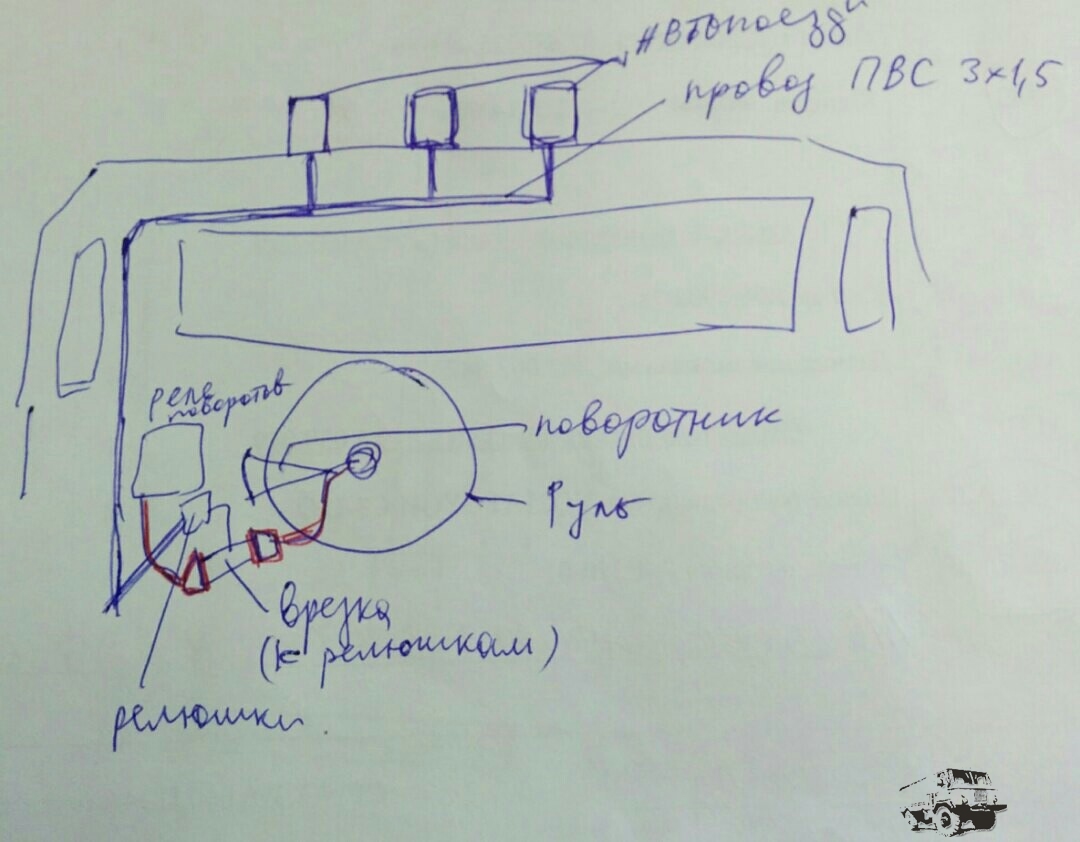 Автопоезд
провод ПВС 3×1,5
реле
поворотов
поворотник
Руль
Врезка
(к релюшкам)
релюшки.